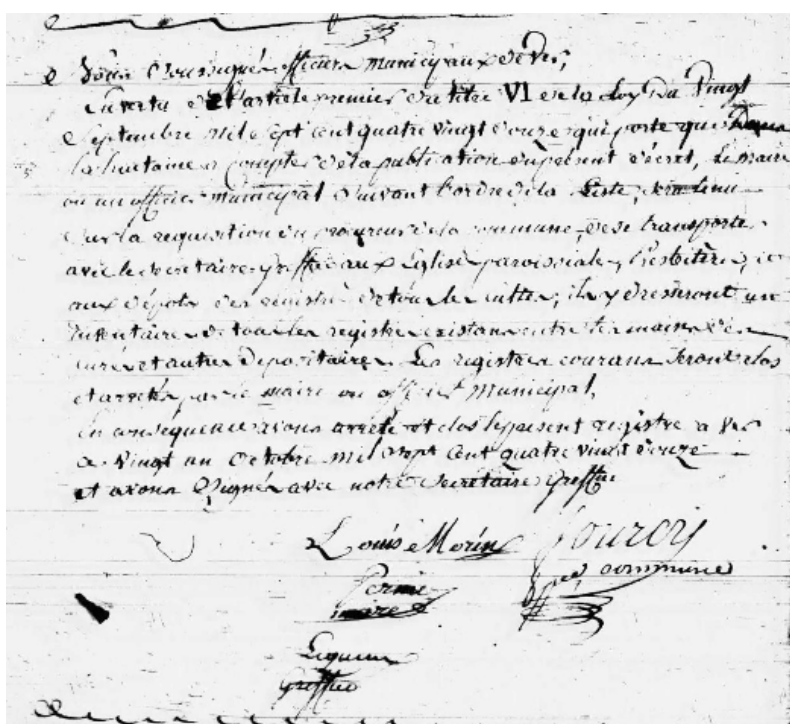 Nous Soussignés officiers municipaux de Ver,
En vertu de l'article premier du titre VI de la Loy du Vingt
Septembre mil sept cent quatre vingt douze qui porte que Dans
la huitaine a compter de la publication du présent décret, Le maire
ou un officier municipal Suivant l'ordre de la Liste, sera tenu
Sur la requisition du procureur de la commune, de se transporter
avec le secretaire greffier aux Eglises paroissiales, Presbitères, et
aux dépots des registres de tous les cultes; ils y dresseront un
Inventaire de tous les registres existans entre les mains des
curés et autres dépositaires. Les registres courans seront clos
et arretés par le maire ou officier municipal.
En consequence avons arrêté et clos le present registre a Ver
ce Vingt un Octobre mil sept Cent quatre vingt douze
et avons Signés avec notre Secrétaire Greffier
Louis Morin Jourois
commune
maire
Greffier